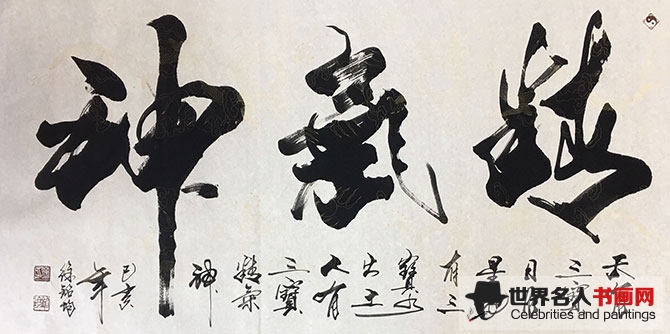 精氣神
天有
三寶
日月
星地
有三
寶水
火土
人有
三寶
精氣
神
己亥
年
徐
世界名人书画网
Celebrities and paintings